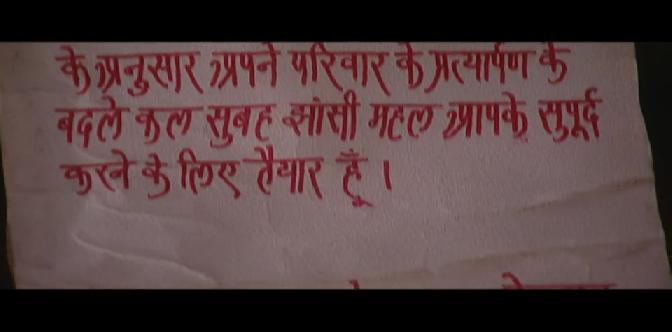 के अनुसार अपने परिवार के प्रत्यार्पण के
बदले कल सुबह झांसी महल आपके सुपूर्द
करने के लिए तैयार हूँ ।